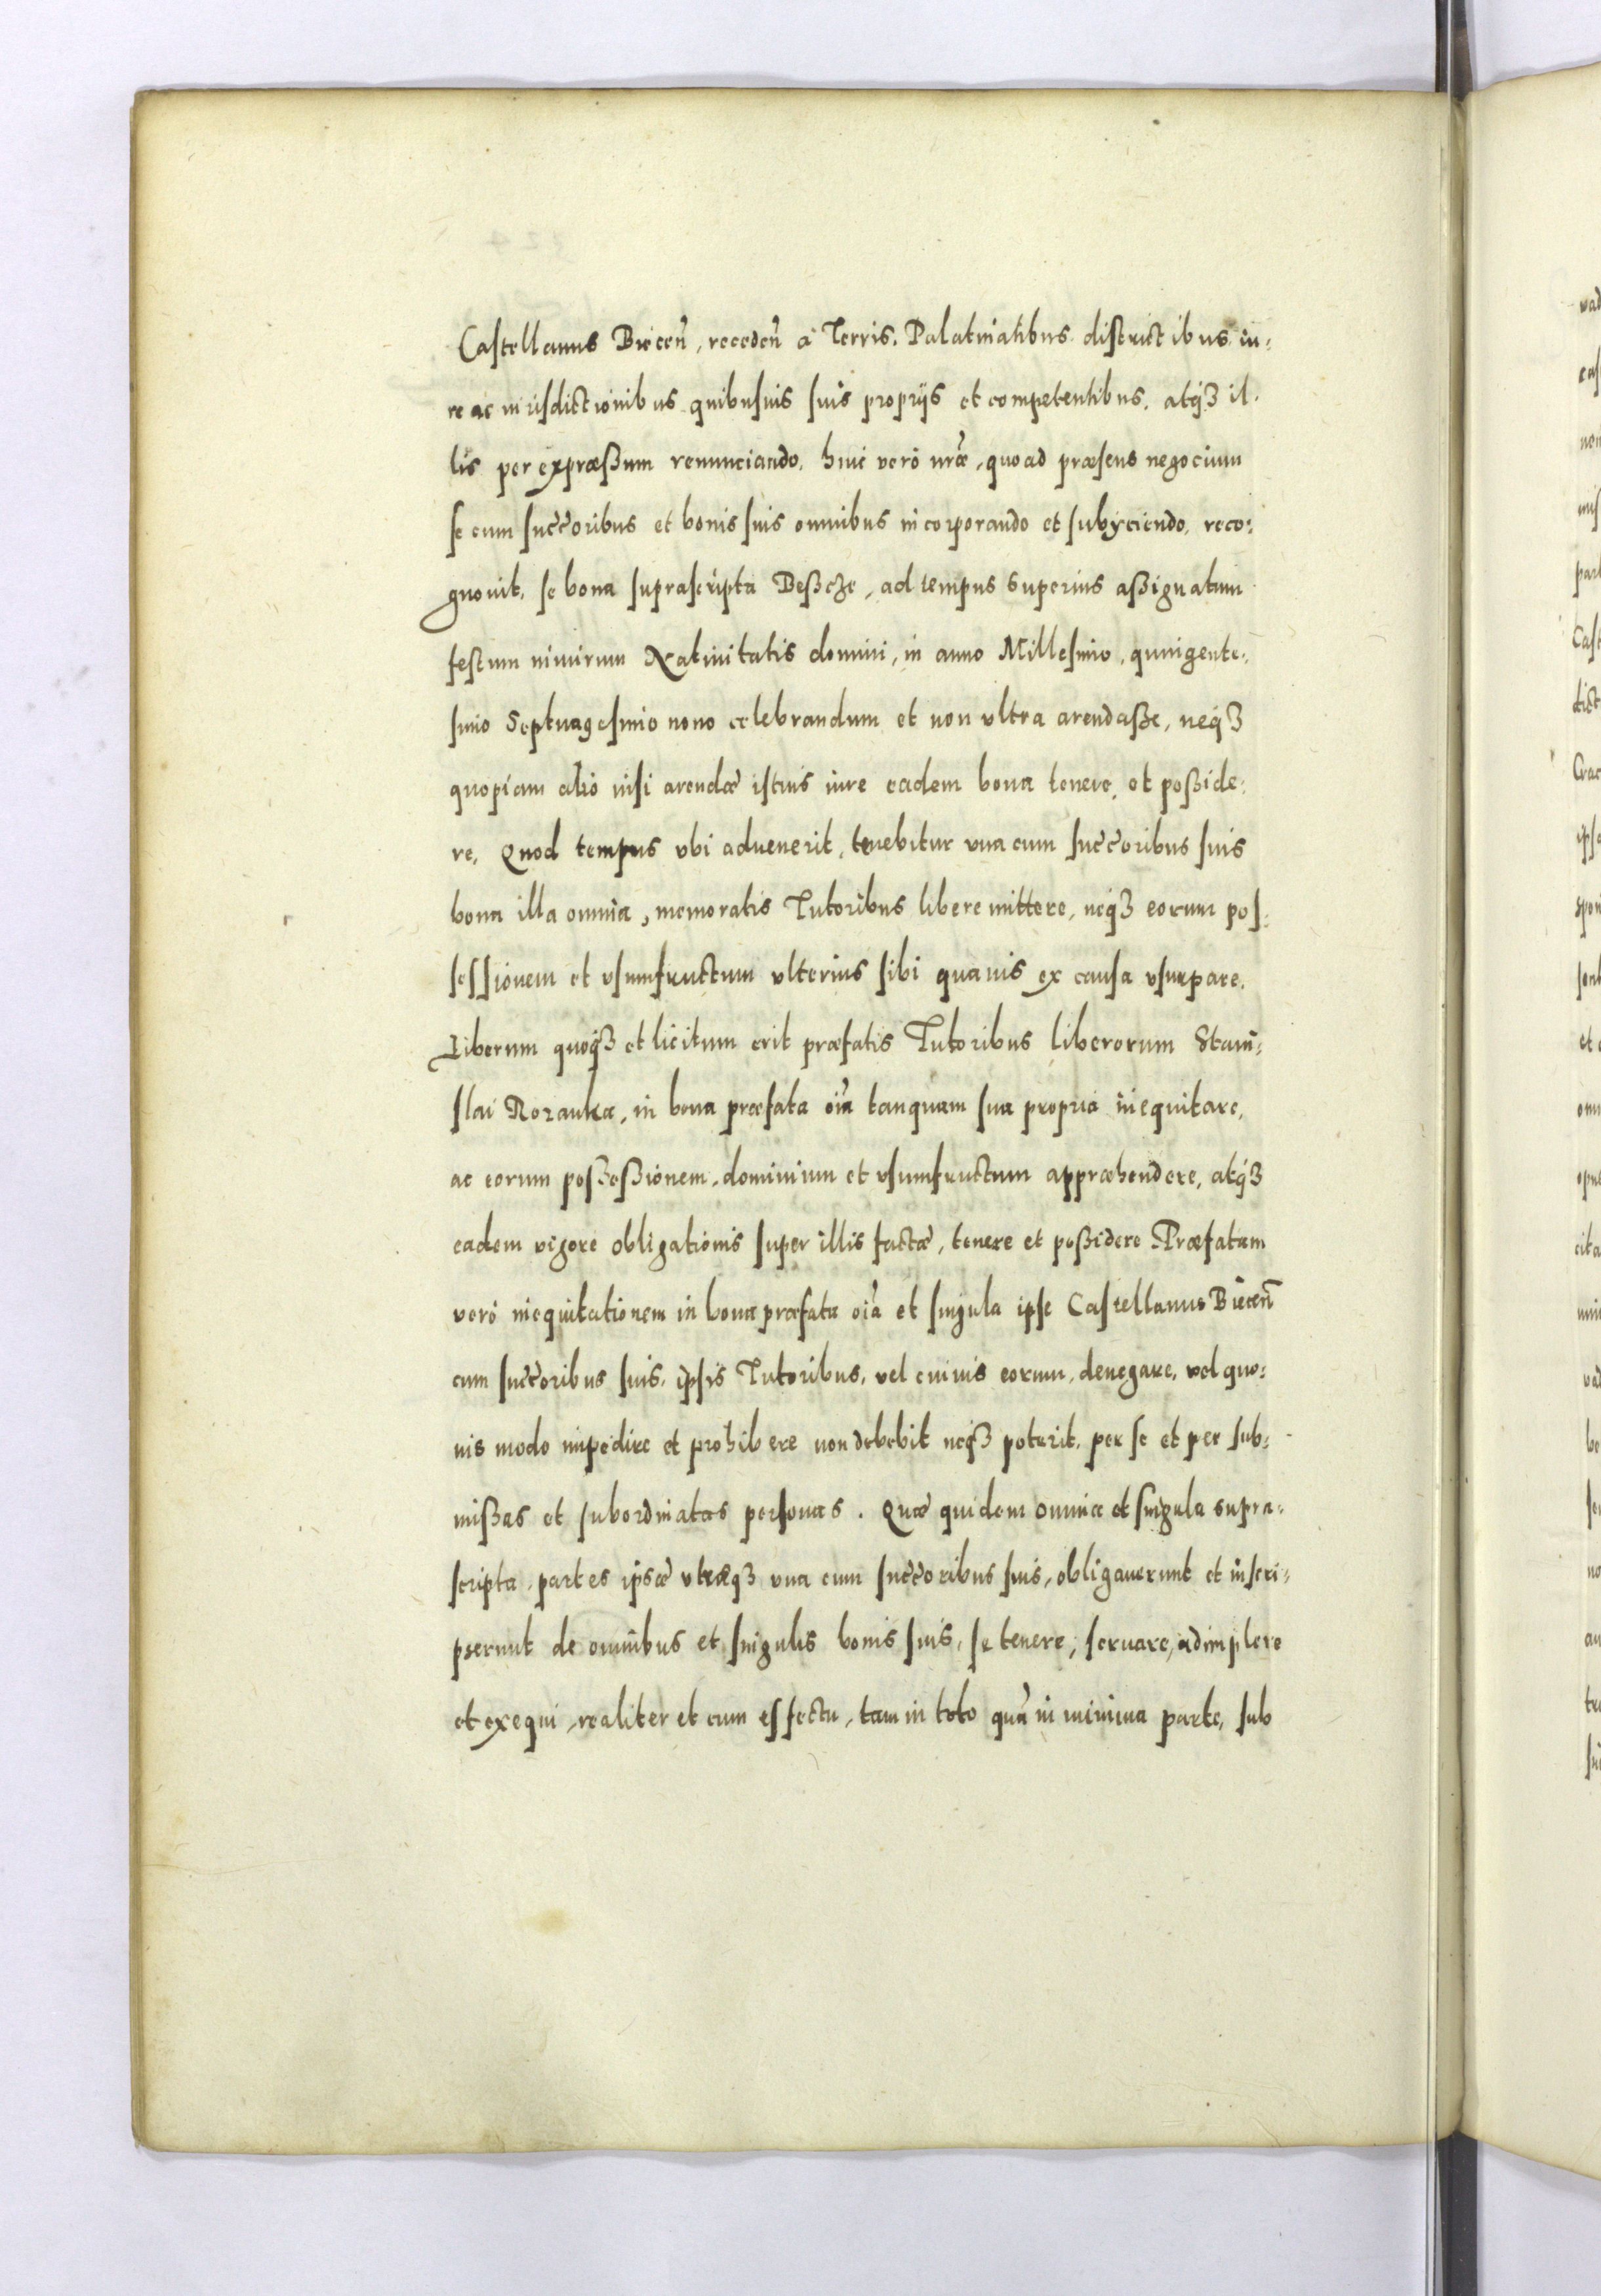 Castellanus Biecen̄, receden̄ a Terris, Palatinatibus districtibus iu-
re ac iurisdictionibus quibusuis suis proprijs et competentibus, atqȝ il-
lis per expræßum renunciando, huic vero nr̄æ, quoad præsens negocium
se cum succ̄oribus et bonis suis omnibus incorporando et subyciendo, reco-
gnouit, se bona suprascripta Beßcze, ad tempus superius aßignatum
festum nimirum Natiuitatis domini, in anno Millesimo, quingente-
simo Septuagesimo nono celebrandum et non vltra arendaße, neqȝ
quopiam alio nisi arendæ istius iure eadem bona tenere, et poßide-
re, Quod tempus vbi aduenerit, tenebitur vna cum succ̄oribus suis
bona illa omnia, memoratis Tutoribus libere mittere, neqȝ eorum pos-
sessionem et vsumfructum vlterius sibi quauis ex causa vsurpare.
Liberum quoqȝ et licitum erit præfatis Tutoribus liberorum Stani-
slai Rozanka, in bona præfata oīa tanquam sua propria inequitare,
ac eorum poßeßionem, dominium et vsumfructum appræhendere, atqȝ
eadem vigore obligationis super illis factæ, tenere et poßidere. Præfatam
vero inequitationem in bona præfata oīa et singula ipse Castellanus Biecen̄
cum succ̄oribus suis, ipsis Tutoribus, vel cuiuis eorum, denegare, vel quo-
uis modo impedire et prohibere non debebit neqȝ poterit, per se et per sub-
mißas et subordinatas personas. Quæ quidem omnia et singula supra-
scripta, partes ipsæ vtræqȝ vna cum succ̄oribus suis, obligauerunt et inscri-
pserunt de omnibus et singulis bonis suis, se tenere, seruare, adimplere
et exequi, realiter et cum effectu, tam in toto quā in minima parte, sub